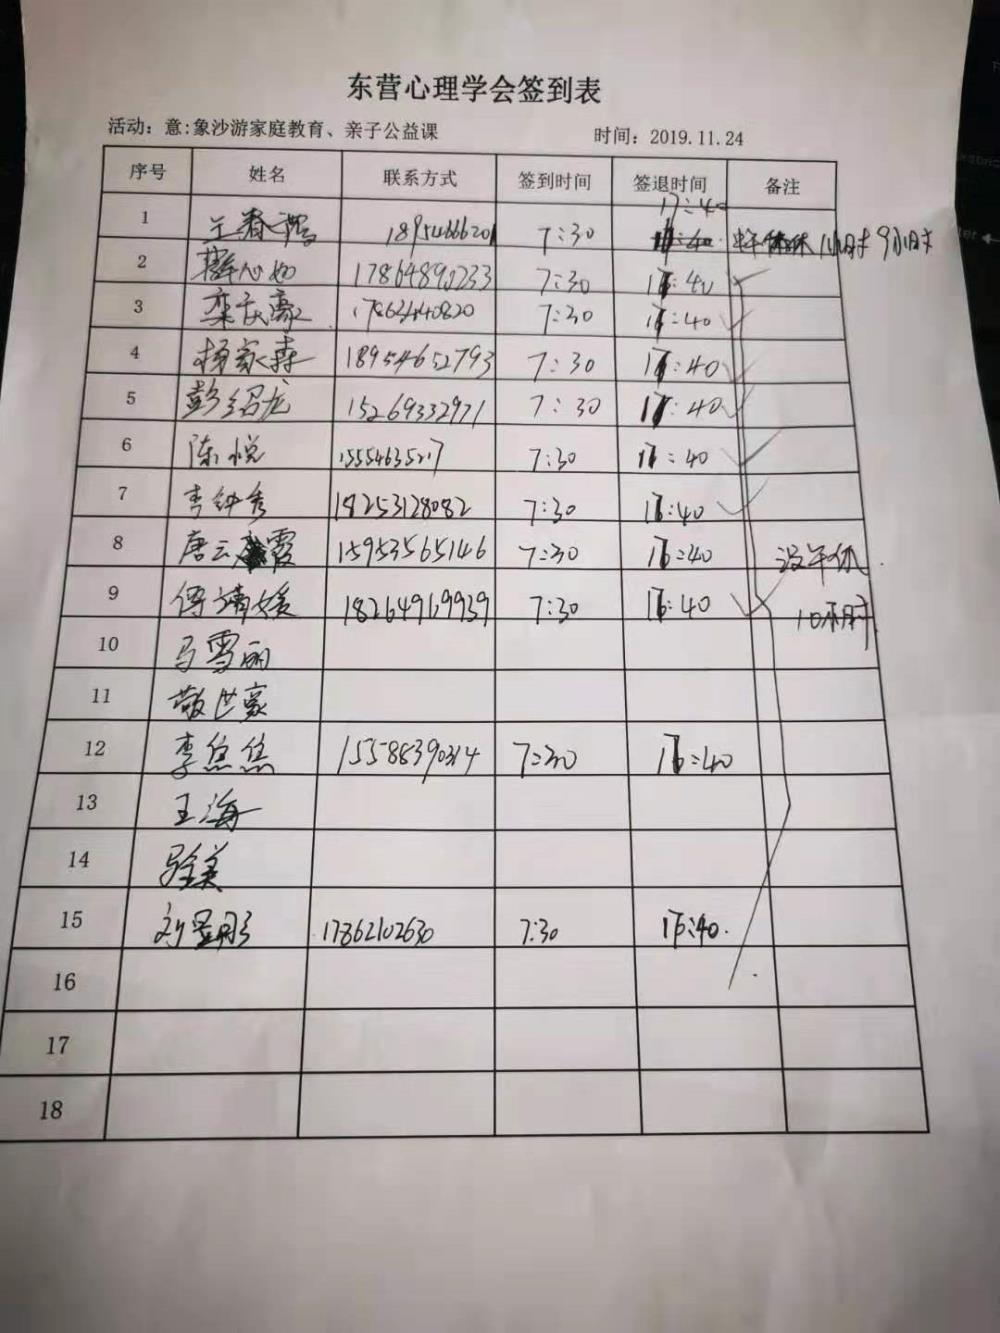 东营心理学会签到表
活动：意:象沙游家庭教育、亲子公益课 时间：2019.11.24
序号 姓名 联系方式 签到时间 签退时间 备注
1 7:30 17:40 1小时 9小时
2 17864890233 7:30 17:40
3 栾庆豪 7:30 17:40
4 杨家森 18954652793 7:30 17:40
5 彭绍龙 15269332971 7:30 17:40
6 陈悦 7:30 17:40
7 李钟秀 18253128082 7:30 17:40
8 唐云霞 15953565146 7:30 17:40 没午休
9 傅靖媛 18264919939 7:30 17:40 10小时
10 马雪丽
11 敬世豪
12 李焦焦 15588390314 7:30 17:40
13 王海
14 马全美
15 17862102630 7:30 17:40.
16
17
18